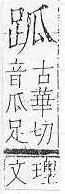 古華切
音瓜足
文理